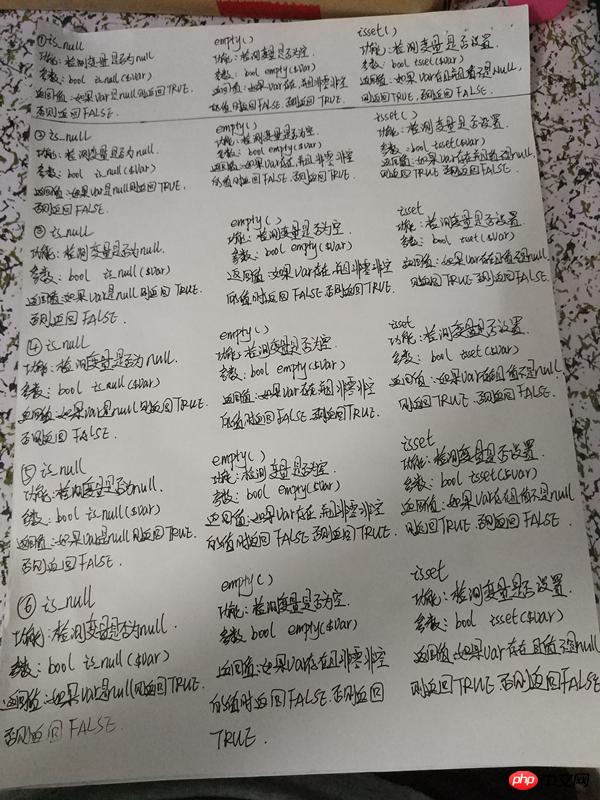 ①is_null
功能:检测变量是否为null
参数: bool is_null($var)
返回值:如果var是null则返回TRUE.
否则返回FALSE.
empty()
功能:检测变量是否为空.
参数: bool empty($var)
返回值:如果var存在,并且非零非空
的值时返回FALSE.否则返回TRUE.
isset()
功能:检测变量是否设置.
参数: bool isset($var)
返回值:如果var存在且值不是NULL,
则返回TRUE,否则返回FALSE.
②is_null
功能:检测变量是否为null.
参数: bool is_null($var)
返回值:如果var是null则返回TRUE,
否则返回FALSE.
empty()
功能:检测变量是否为空.
参数: bool empty($var)
返回值:如果var存在,并且非零非空
的值时返回FALSE.否则返回TRUE.
isset()
功能:检测变量是否设置.
参数: bool isset($var)
返回值:如果var存在且值不是null,
则返回TRUE否则返回FALSE.
③is_null
功能:检测变量是否为null.
参数: bool is_null($var)
返回值:如果var是null则返回TRUE.
否则返回FALSE.
empty()
功能:检测变量是否为空
参数: bool empty($var)
返回值:如果var存在,并且非零非空
的值时返回FALSE.否则返回TRUE.
isset
功能:检测变量是否设置.
参数: bool isset($var)
返回值:如果var存在且值不是null,
则返回TRUE否则返回FALSE.
④is_null
功能:检测变量是否为null.
参数: bool is_null($var)
返回值:如果var是null则返回TRUE.
否则返回FALSE.
empty()
功能:检测变量是否为空
参数: bool empty($var)
返回值:如果var存在,并且非零非空
的值时返回FALSE.否则返回TRUE.
isset
功能:检测变量是否设置.
参数: bool isset($var)
返回值:如果var存在且值不是null
则返回TRUE.否则返回FALSE.
⑤is_null
功能:检测变量是否为null.
参数: bool is_null($var)
返回值:如果var是null则返回TRUE.
否则返回FALSE.
empty()
功能:检测变量是否为空.
参数: bool empty($var)
返回值:如果var存在,并且非零非空
的值时返回FALSE.否则返回TRUE.
isset
功能:检测变量是否设置.
参数: bool isset($var)
返回值:如果var存在且值不是null
则返回TRUE否则返回FALSE.
⑥is_null
功能:检测变量是否为null.
参数: bool is_null($var)
返回值:如果var是null则返回TRUE.
否则返回FALSE.
empty()
功能:检测变量是否为空.
参数 bool empty($var)
返回值:如果var存在且非零非空
的值时返回FALSE.否则返回
TRUE.
isset
功能:检测变量是否设置.
参数: bool isset($var)
返回值:如果var存在且值不是null
则返回TRUE.否则返回FALSE
php中文网